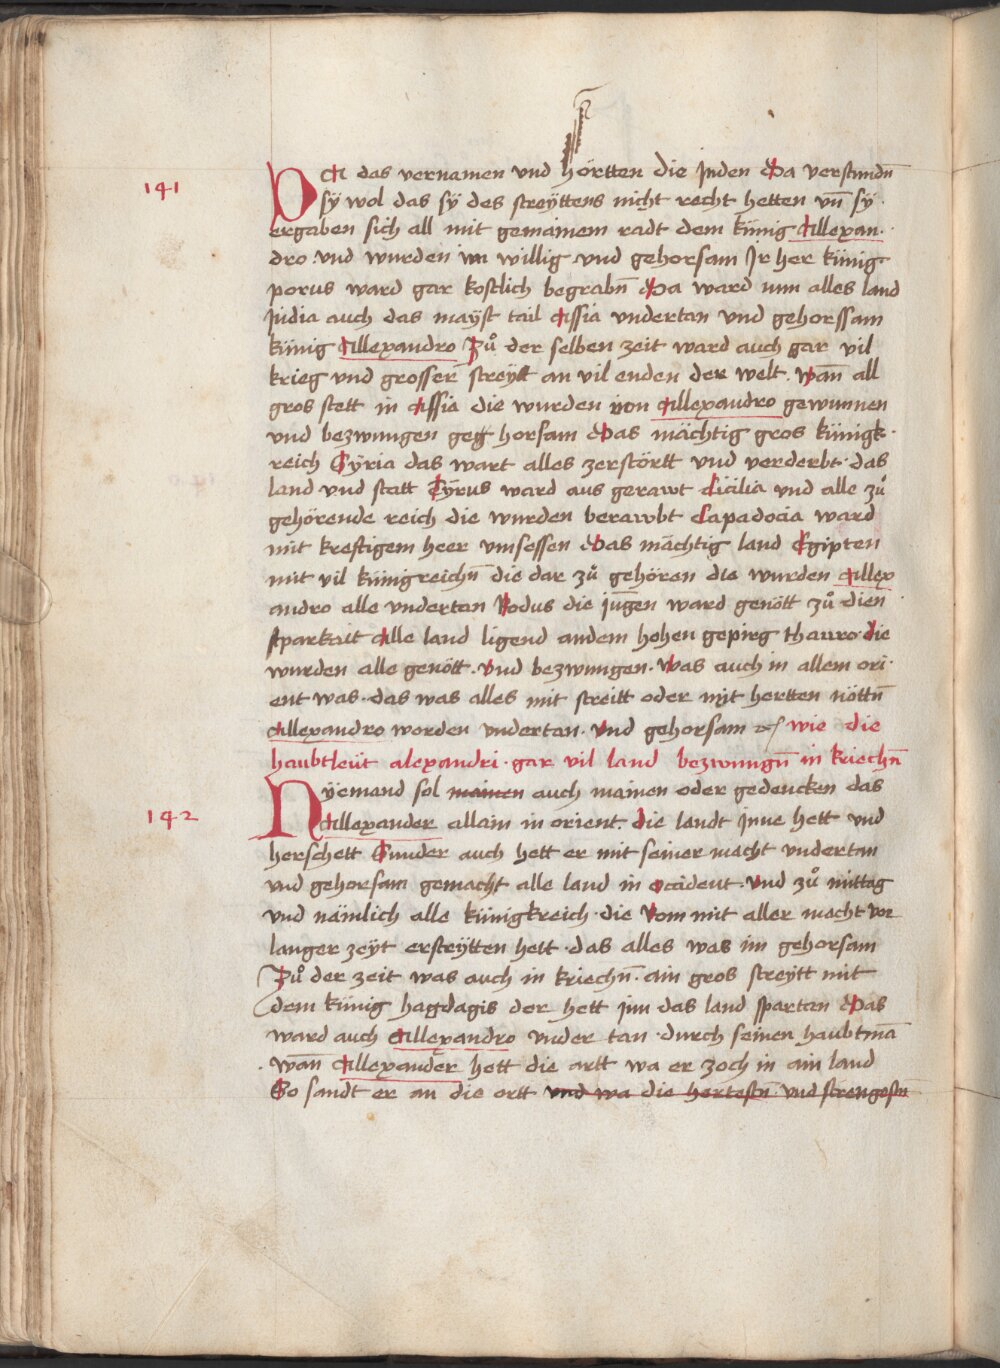 141
DA das vernamen vnd hörtten die Juden Da verstundn̄
sÿ wol das sÿ des streÿttens nicht recht hetten vn̄ sÿ
ergaben sich all mit gemainem radt dem künig Allexan
dro vnd wurden im willig vnd gehorsam Jr her künig
porus ward gar kostlich begrabn̄ Da ward nun alles land
Jndia auch das mayst tail Assia vndertan vnd gehorssam
künig Allexandro Zů der selben zeit ward auch gar vil
krieg vnd grosser streÿtt an vil enden der welt. wan̄ all
gros stett in Assia die wurden von Allexandro gewunnen
vnd bezwungen geg horsam Das mächtig gros künigk
reich Syria das wart alles zerstörtt vnd verderbt das
land vnd statt Tÿrus ward aus gerawt Cicilia vnd alle zů
gehörende reich die wurden berawbt Capadocia ward
mit kreftigem heer vmsessen Das mächtig land Egipten
mit vil künigreichn̄ die dar zů gehören die wurden Allex
andro alle vndertan Rodus die jungen ward genött zů dien
sparkait Alle land ligend andem hohen gepirg thauro die
wurden alle genött. vnd bezwungen. was auch in allem ori
ent was. das was alles mit streitt oder mit hertten nöttn̄
Allexandro worden vndertan. vnd gehorsam wie die
haubtleüt alexandri gar vil land bezwungn̄ in kriechn̄
142
Nÿemand sol mainen auch mainen oder gedencken das
Allexander allain in orient. die landt jnne hett vnd
herschett Sunder auch hett er mit seiner macht vndertan
vnd gehorsam gemacht alle land in occident. vnd zů mittag
vnd nämlich alle künigkreich. die Rom mit aller macht vor
langer zeÿt erstrÿtten hett. das alles was im gehorsam
Zů der zeit was auch in kriechn̄. ain gros streytt mit
dem künig hagdagis der hett jnn das land spartan Das
ward auch Allexandro vnder tan. durch seinen haubtmā
wan̄ Allexander hett die artt wa er zoch in ain land
So sandt er an die ortt vnd wa die hertestn̄ vnd strengostn̄